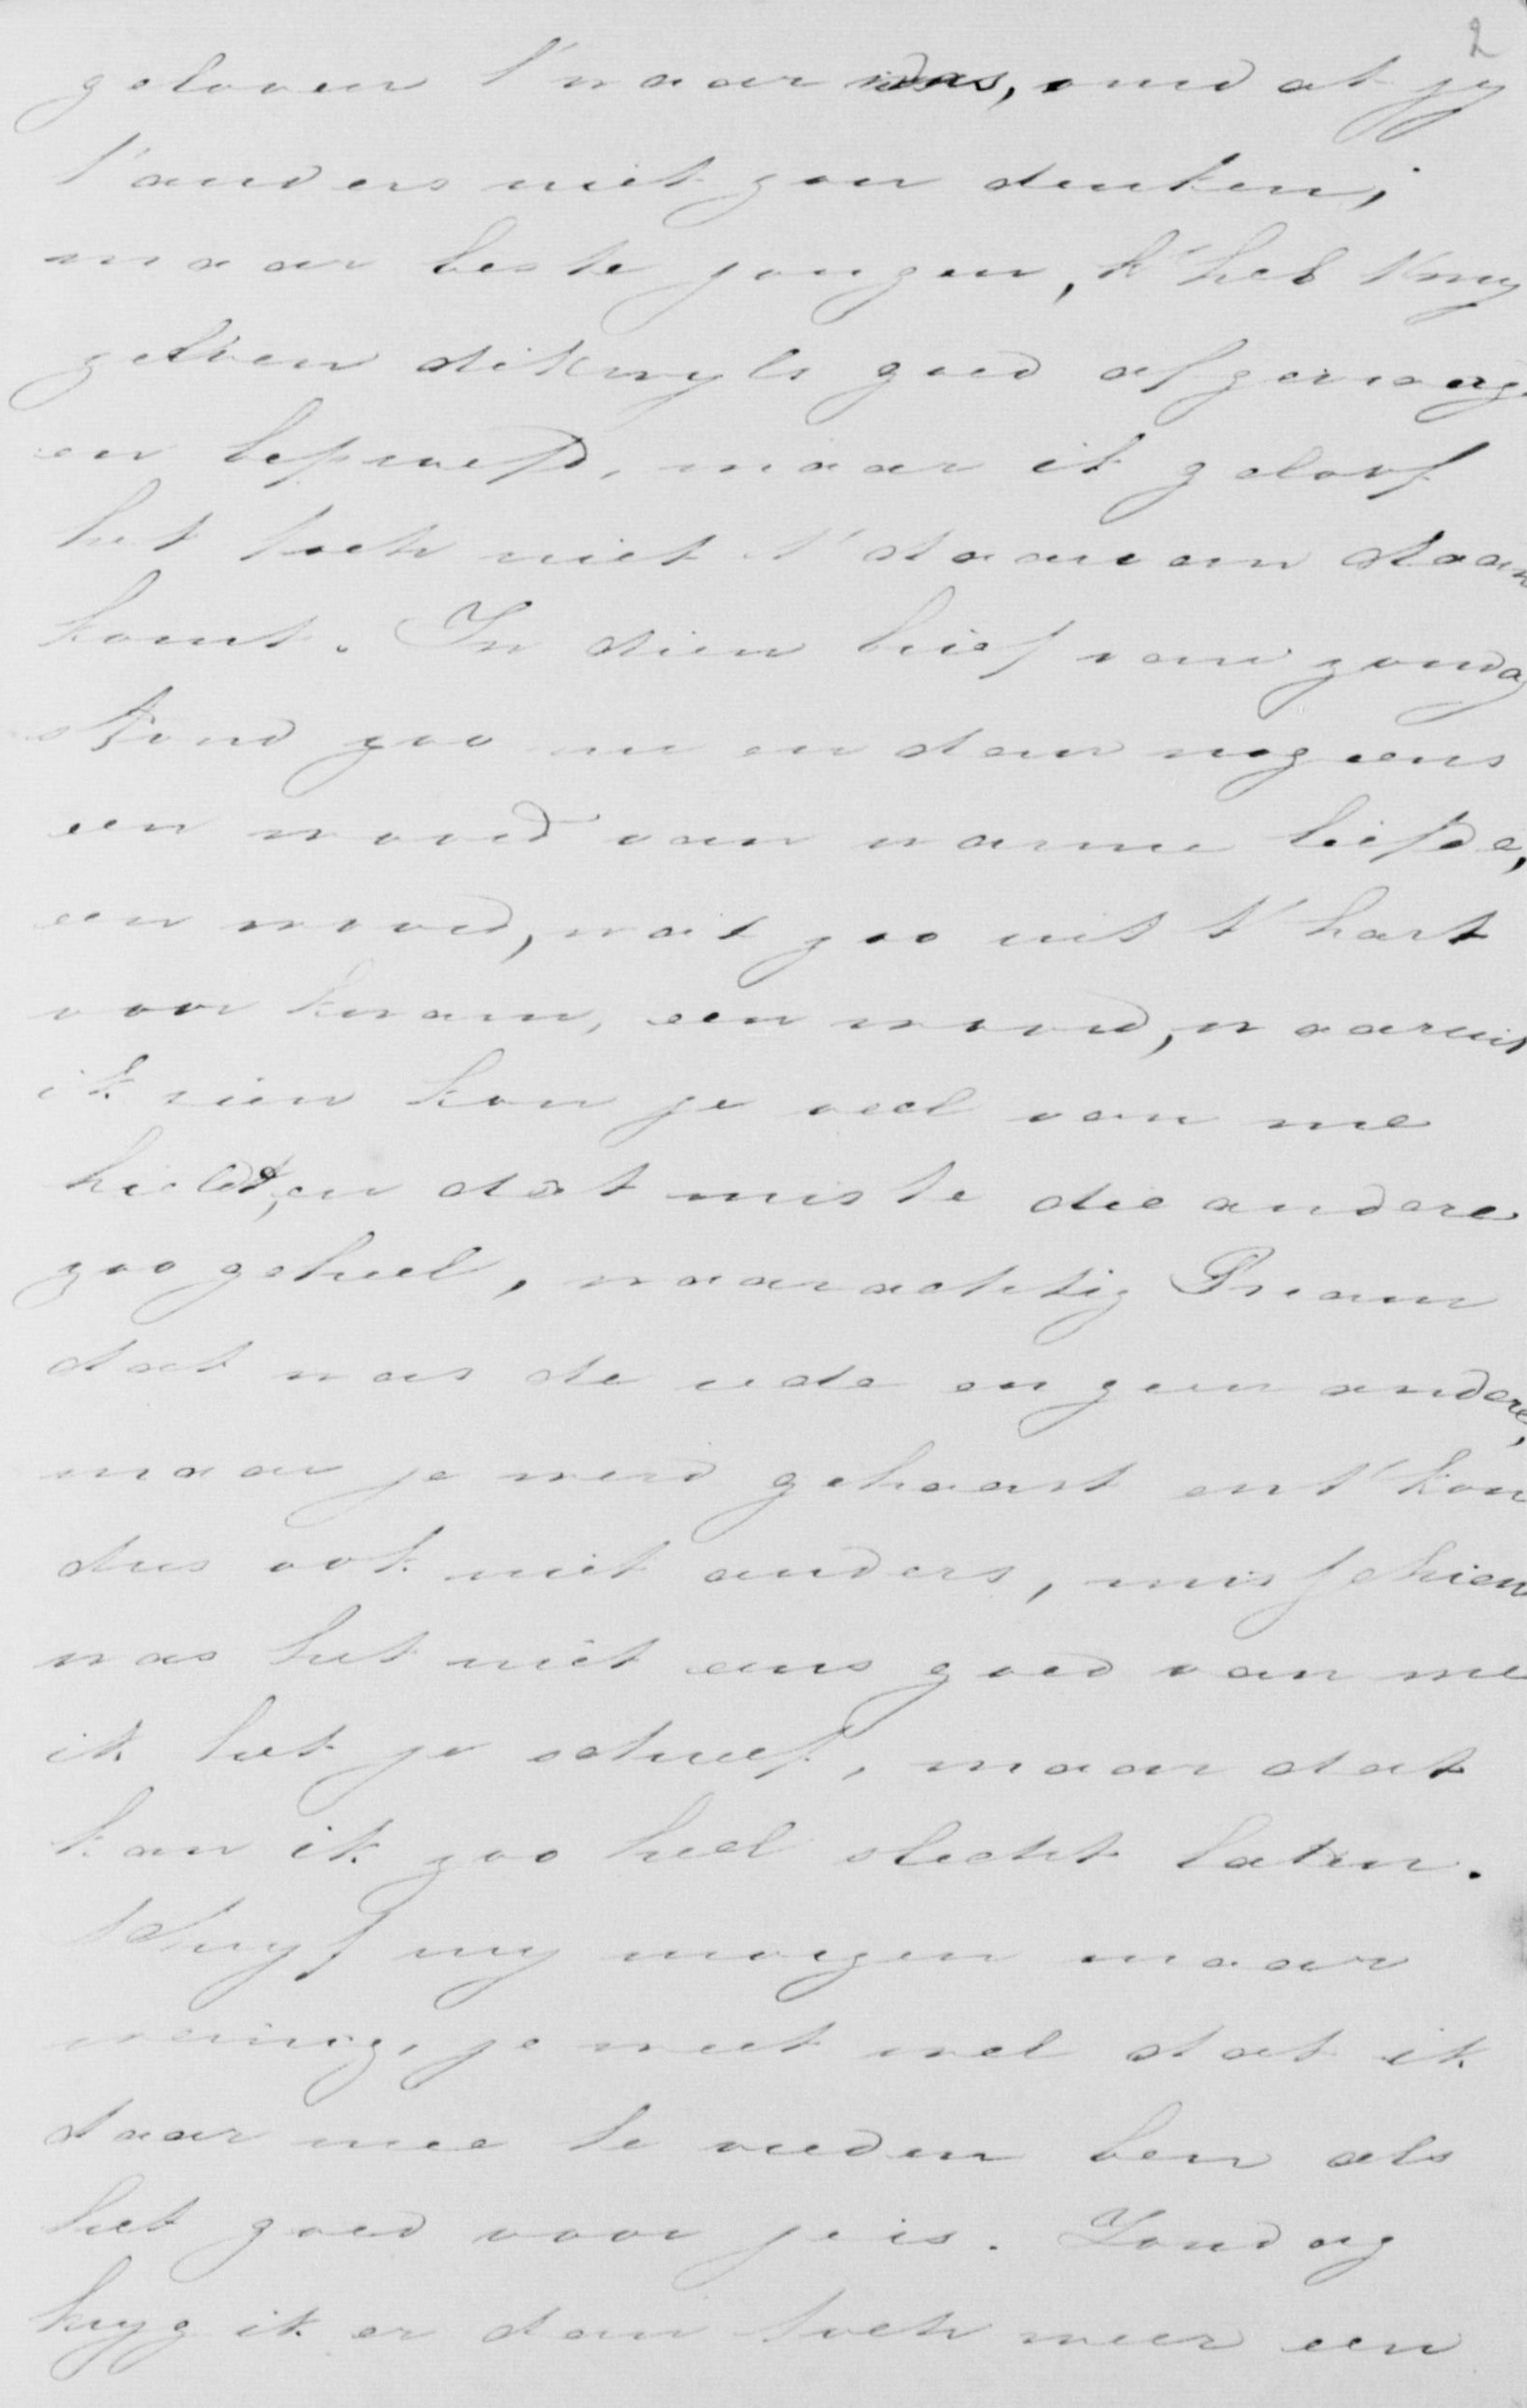 2
geloven t'waar was, omdat jy
t'anders niet zou denken;
maar beste jongen, k'heb 't my
zelven dikwyls goed afgevraag
en beproefd, maar ik geloof
het toch niet t'daarvan daan
komt. In dien brief van zondag
stond zoo nu en dan nog eens
een woord van warme liefde,
een woord, wat zoo uit t'hart
voor kwam, een woord, waaruit
ik zien kon je veel van me
hieldt, en dat miste die andere
zoo geheel, waarachtig Braam
dat was de rede en geen andere,
maar je werd gehaast en t'kon
dus ook niet anders, misschien
was het niet eens goed van me
ik het je schreef, maar dat
kan ik zoo heel slecht laten.
Schryf my morgen maar
weinig, je weet wel dat ik
daar mee te vreden ben als
het goed voor je is. Zondag
kryg ik er dan toch weer een